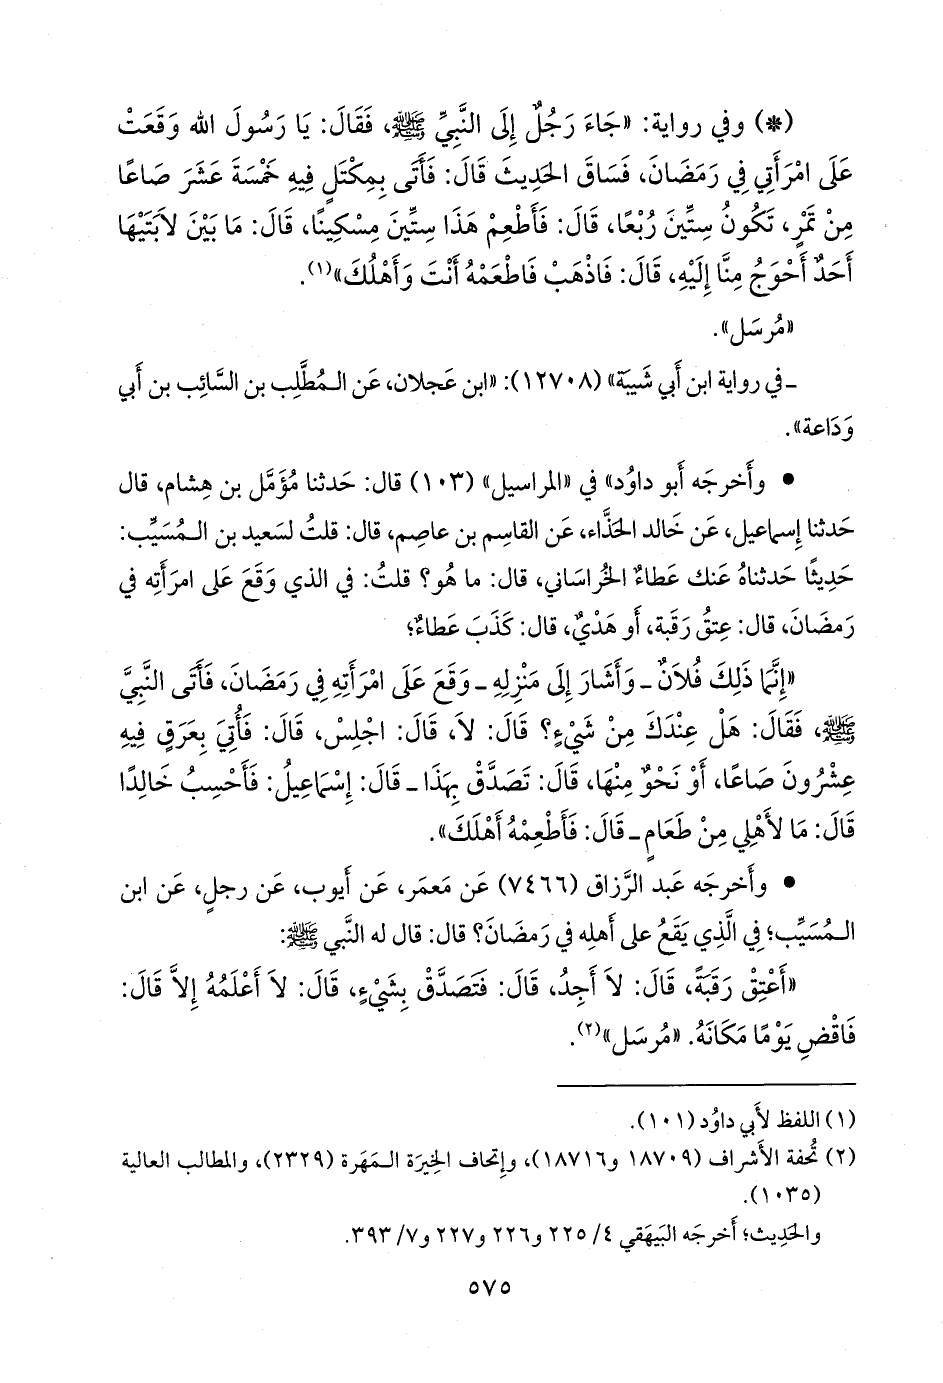 (*) وفي رواية: «جَاءَ رَجُلٌ إِلَى النَّبِيِّ ﷺ، فَقَالَ: يَا رَسُولَ الله وَقَعَتْ
عَلَى امْرَأَتِي فِي رَمَضَانَ، فَسَاقَ الحَدِيثَ قَالَ: فَأَتَى بِمِكْتَلٍ فِيهِ خَمْسَةَ عَشَرَ صَاعًا
مِنْ تَمْرٍ، تَكُونُ سِتِّينَ رُبْعًا، قَالَ: فَأَطْعِمْ هَذَا سِتِّينَ مِسْكِينًا، قَالَ: مَا بَيْنَ لاَبَتَيْهَا
أَحَدٌ أَحْوَجُ مِنَّا إِلَيْهِ، قَالَ: فَاذْهَبْ فَاطْعَمْهُ أَنْتَ وَأَهْلُكَ»(١).
«مُرسَل».
ـ في رواية ابن أَبي شَيبَة» (١٢٧٠٨): «ابن عَجلان، عَن المُطَّلِب بن السَّائِب بن أَبي
وَدَاعة».
• وأَخرجَه أَبو داوُد» في «المراسيل» (١٠٣) قال: حَدثنا مُؤَمَّل بن هِشام، قال
حَدثنا إِسماعيل، عَن خَالد الحَذَّاء، عَن القاسِم بن عاصِم، قال: قلتُ لسَعيد بن المُسَيِّب:
حَدِيثًا حَدثناهُ عَنك عَطاءٌ الخُراساني، قال: ما هُو؟ قلتُ: في الذي وَقَعَ عَلى امرَأَتِه في
رَمضَانَ، قال: عِتقُ رَقَبة، أَو هَدْيٌ، قال: كَذَبَ عَطاءٌ؛
«إِنَّمَا ذَلِكَ فُلاَنٌ ـ وَأَشَارَ إِلَى مَنْزِلِهِ ـ وَقَعَ عَلَى امْرَأَتِهِ فِي رَمَضَانَ، فَأَتَى النَّبِيَّ
ﷺ، فَقَالَ: هَلْ عِنْدَكَ مِنْ شَيْءٍ؟ قَالَ: لاَ، قَالَ: اجْلِسْ، قَالَ: فَأُتِيَ بِعَرَقٍ فِيهِ
عِشْرُونَ صَاعًا، أَوْ نَحْوٌ مِنْهَا، قَالَ: تَصَدَّقْ بِهَذَا ـ قَالَ: إِسْمَاعِيلُ: فَأَحْسِبُ خَالِدًا
قَالَ: مَا لأَهْلِي مِنْ طَعَامٍ ـ قَالَ: فَأَطْعِمْهُ أَهْلَكَ».
• وأَخرجَه عَبد الرَّزاق (٧٤٦٦) عَن مَعمَر، عَن أَيوب، عَن رجلٍ، عَن ابن
المُسَيِّب؛ في الَّذِي يَقَعُ على أَهلِه في رَمضَانَ؟ قال: قال له النَّبي ﷺ:
«أَعْتِقْ رَقَبَةً، قَالَ: لاَ أَجِدُ، قَالَ: فَتَصَدَّقْ بِشَيْءٍ، قَالَ: لاَ أَعْلَمُهُ إِلاَّ قَالَ:
فَاقْضِ يَوْمًا مَكَانَهُ. «مُرسَل»(٢).
(١) اللفظ لأَبي داوُد (١٠١).
(٢) تُحفة الأَشراف (١٨٧٠٩ و١٨٧١٦)، وإِتحاف الخِيرَة المَهَرة (٢٣٢٩)، والمطالب العالية
(١٠٣٥).
والحَدِيث؛ أَخرجَه البَيهَقي ٤/ ٢٢٥ و٢٢٦ و٢٢٧ و٧/ ٣٩٣.
٥٧٥